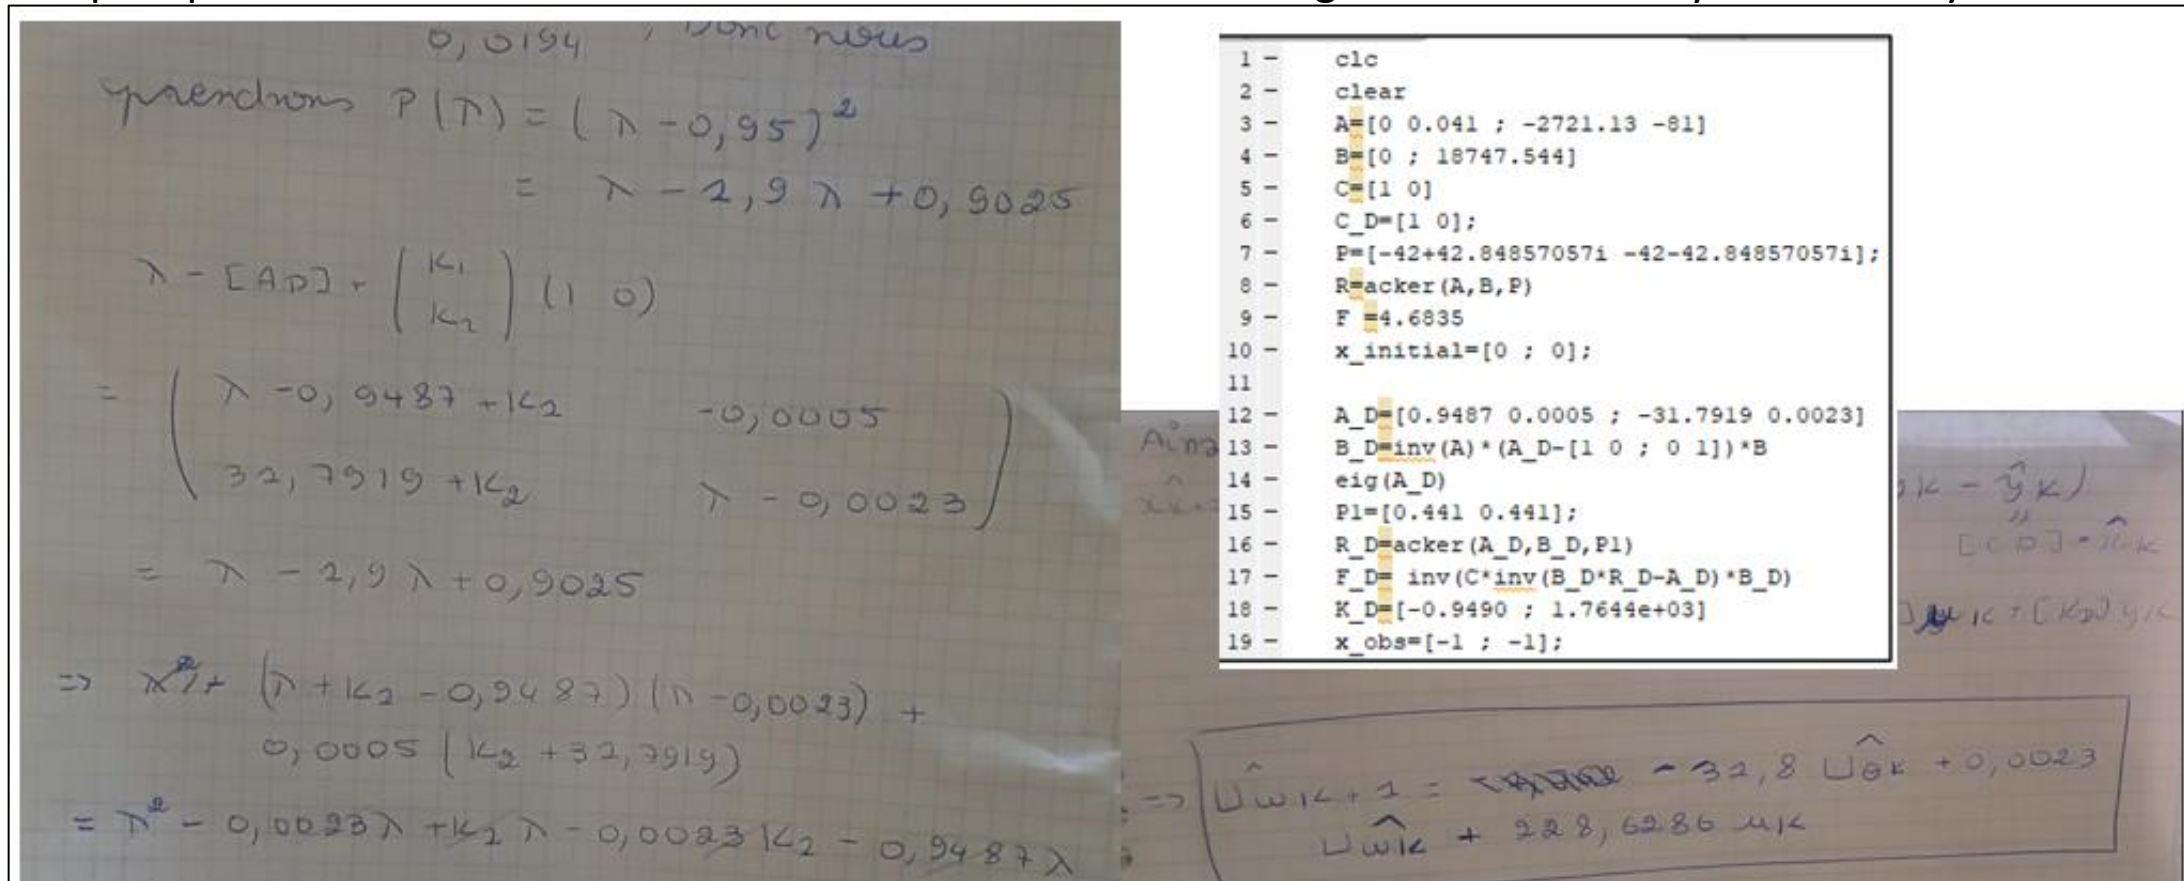 0,0194 , Donc nous
prendrons P(λ) = (λ - 0,95)²
= λ - 1,9 λ + 0,9025
λ - [AD] + (K1 K2) (1 0)
= ( λ - 0,9487 + K1 -0,0005
31,7919 + K2 λ - 0,0023 )
= λ - 1,9 λ + 0,9025
=> (λ + K1 - 0,9487) (λ - 0,0023) +
0,0005 (K2 + 31,7919)
= λ² - 0,0023λ + K1 λ - 0,0023 K1 - 0,9487 λ
1 - clc
2 - clear
3 - A=[0 0.041 ; -2721.13 -81]
4 - B=[0 ; 18747.544]
5 - C=[1 0]
6 - C_D=[1 0];
7 - P=[-42+42.84857057i -42-42.84857057i];
8 - R=acker(A,B,P)
9 - F =4.6835
10 - x_initial=[0 ; 0];
11
12 - A_D=[0.9487 0.0005 ; -31.7919 0.0023]
13 - B_D=inv(A)*(A_D-[1 0 ; 0 1])*B
14 - eig(A_D)
15 - P1=[0.441 0.441];
16 - R_D=acker(A_D,B_D,P1)
17 - F_D= inv(C*inv(B_D*R_D-A_D)*B_D)
18 - K_D=[-0.9490 ; 1.7644e+03]
19 - x_obs=[-1 ; -1];
K - ŷK)
[CD] * x̂K
uK + [KD] yK
=> Ûωk+1 = - 31,8 Ûθk + 0,0023
Ûωk + 228,6286 uk